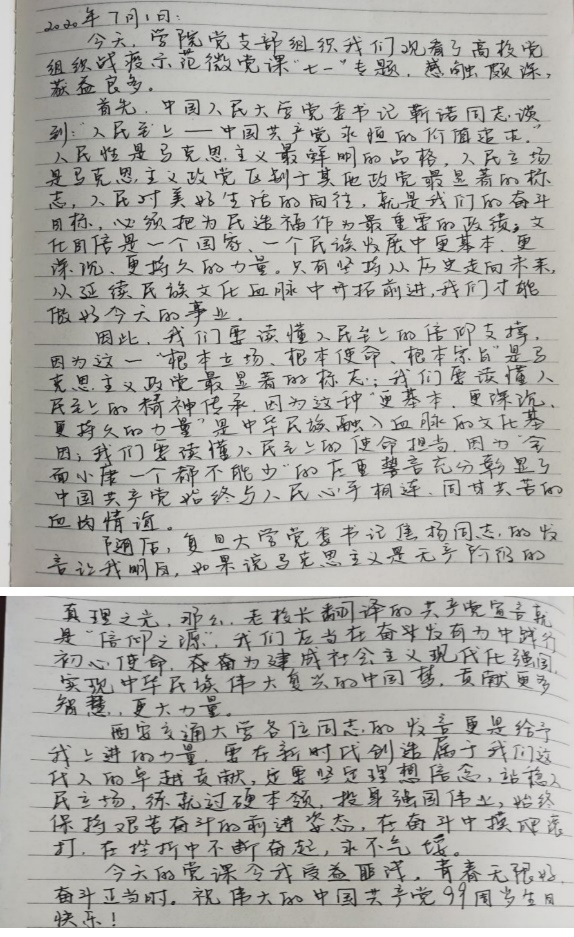 2020年7月1日:
今天,学院党支部组织我们观看了高校党
组织战疫示范微党课"七一"专题,感触颇深,
获益良多。
首先,中国人民大学党委书记靳诺同志谈
到:"人民至上——中国共产党永恒的价值追求。"
人民性是马克思主义最鲜明的品格,人民立场
是马克思主义政党区别于其他政党最显著的标
志,人民对美好生活的向往,就是我们的奋斗
目标,必须把为民造福作为最重要的政绩。文
化自信是一个国家、一个民族发展中更基本、更
深沉、更持久的力量。只有坚持从历史走向未来,
从延续民族文化血脉中开拓前进,我们才能
做好今天的事业。
因此,我们要读懂人民至上的信仰支撑,
因为这一"根本立场、根本使命、根本宗旨"是马
克思主义政党最显著的标志;我们要读懂人
民至上的精神传承,因为这种"更基本、更深沉、
更持久的力量"是中华民族融入血脉的文化基
因;我们要读懂人民至上的使命担当,因为"全
面小康一个都不能少"的庄重誓言充分彰显了
中国共产党始终与人民心手相连、同甘共苦的
血肉情谊。
随后,复旦大学党委书记焦扬同志的发
言让我明白,如果说马克思主义是无产阶级的
真理之光,那么,老校长翻译的共产党宣言就
是"信仰之源",我们应当在奋斗发有为中践行
初心使命,奋为建成社会主义现代化强国,
实现中华民族伟大复兴的中国梦,贡献更多
智慧、更大力量。
西安交通大学各位同志的发言更是给予
我上进的力量,要在新时代创造属于我们这
代人的卓越贡献,定要坚定理想信念,站稳人
民立场,练就过硬本领,投身强国伟业,始终
保持艰苦奋斗的前进姿态,在奋斗中摸爬滚
打,在挫折中不断奋起,永不气馁。
今天的党课令我受益匪浅,青春无限好,
奋斗正当时。祝伟大的中国共产党99周岁生日
快乐!